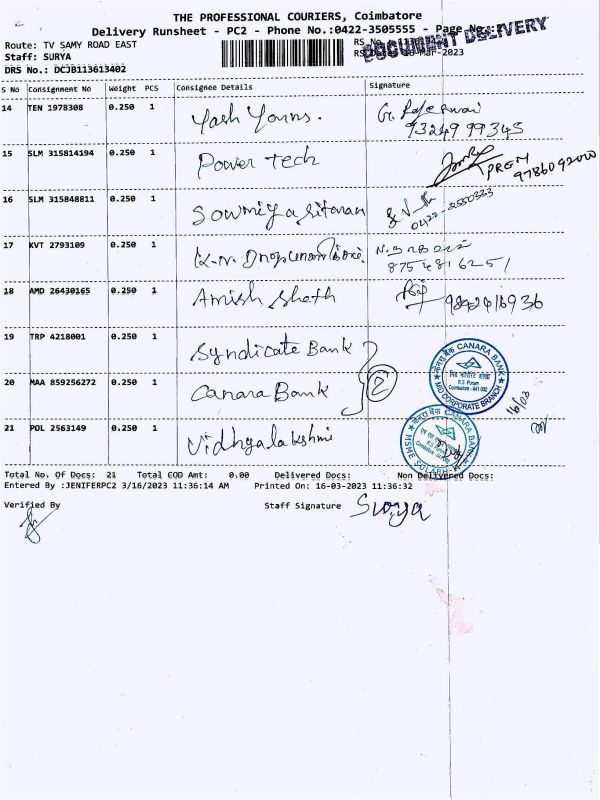 THE PROFESSIONAL COURIERS, Coimbatore
Delivery Runsheet - PC2 - Phone No.:0422-3505555 - Page No.:
Route: TV SAMY ROAD EAST
Staff: SURYA
DRS No.: DCJB113613402
RS No.
-Mar-2023
DOCUMENT DELIVERY
S No Consignment No Weight PCS Consignee Details Signature
14 TEN 1978308 0.250 1 Yash Yarns. 93249 99345
15 SLM 315814194 0.250 1 Power tech PREM 9786092000
16 SLM 315848811 0.250 1 Sowmiya sitaram 0422-2550333
17 KVT 2793109 0.250 1 8754816251
18 AMD 26430165 0.250 1 Amish Sheth 9842416936
19 TRP 4218001 0.250 1 Syndicate Bank
20 MAA 859256272 0.250 1 Canara Bank 2
केनरा बैंक CANARA BANK
R.S. Puram
Coimbatore - 641 002
MID CORPORATE BRANCH
16/03
21 POL 2563149 0.250 1 Vidhyalakshmi
केनरा बैंक CANARA BANK
MSME SULABH
Total No. Of Docs: 21 Total COD Amt: 0.00 Delivered Docs: Non Delivered Docs:
Entered By :JENIFERPC2 3/16/2023 11:36:14 AM Printed On: 16-03-2023 11:36:32
Verified By Staff Signature Surya